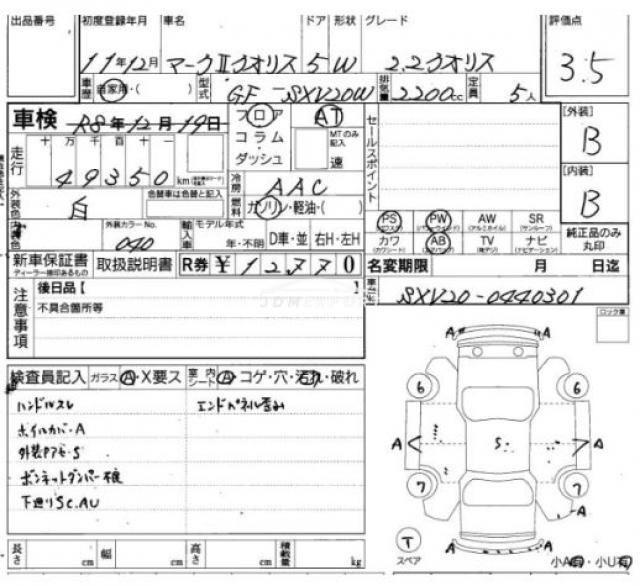 出品番号 初度登録年月 車名 ドア 形状 グレード 評価点
11年12月 マークⅡクオリス 5 W 2.2クオリス 3.5
車歴 自家用・( ) 型式 GF-SXV20W 排気量 2200cc 定員 5人
車検 R8年12月19日 フロア AT セールスポイント [外装]
コラム・ MTのみ記入 B
ダッシュ 速
走行 十 万 千 百 十 一
49350 km 冷房 AAC [内装]
外装色 白 色替車は色替と記入 燃料 ガソリン・軽油・( ) B
内装色 外装カラーNo. 040 輸入車 モデル年式 年・不明 D車・並 右H・左H
PS (パワステ) PW (パワーウインドウ) AW (アルミホイル) SR (サンルーフ) 純正品のみ丸印
カワ (カワシート) AB (エアバッグ) TV ナビ (ナビゲーション)
新車保証書 ディーラー捺印あるもの 取扱説明書 R券 ¥12770 名変期限 月 日迄
注意事項 後日品【 】 SXV20-0440301
不具合箇所等 ロック重
検査員記入 ガラス A・X要ス 室内シート A コゲ・穴・汚れ・破れ
ハンドルスレ エンドパネル歪み
ホイルカバーA
外装PアセS
ボンネットダンパー不良
下廻りSC.AU
A A
6 6
A S. A
7 7
A
T スペア A A 小A有・小U有
長さ cm 幅 cm 高さ cm 積載量 kg